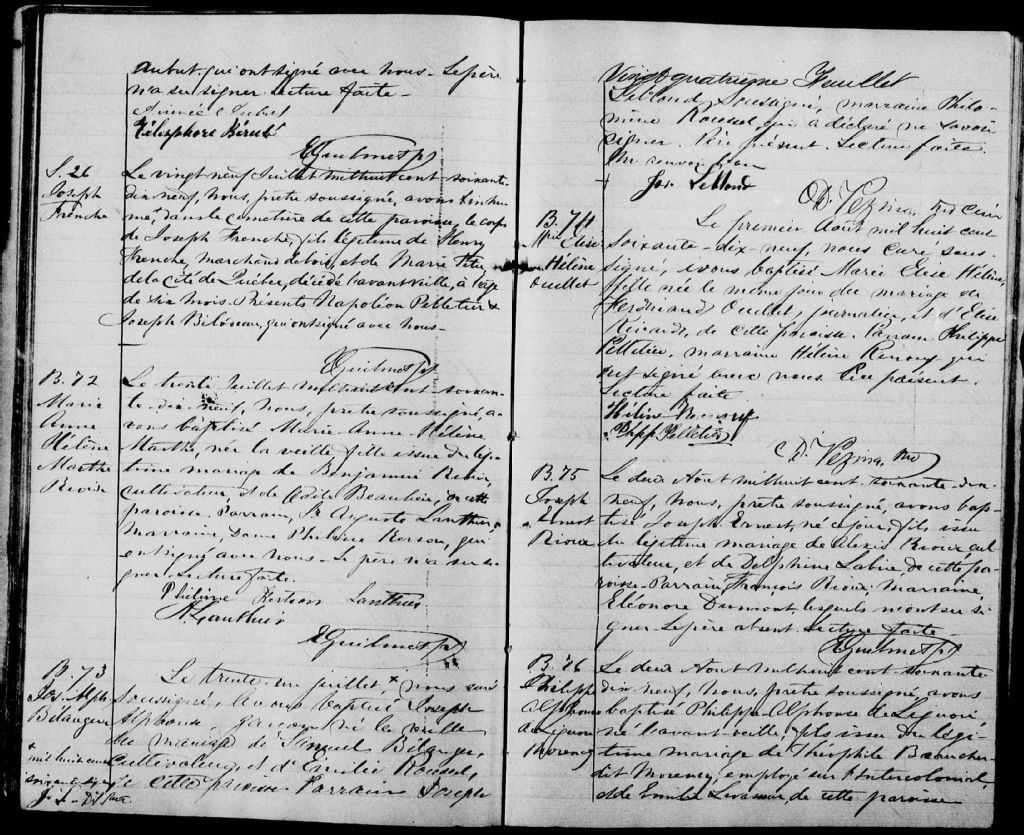 Aubut qui ont signé avec nous. Le père
n'a su signer. Lecture faite.
Aimée Aubut
Télesphore Bérubé
EGuilmet ptr
S. 26
Joseph
Frenche
Le vingt neuf Juillet mil huit cent soixante-
dix neuf, nous, prêtre soussigné, avons inhu-
mé, dans le cimetière de cette paroisse, le corps
de Joseph Frenche, fils légitime de Henry
Frenche, marchand de bois, et de Marie
de la Cité de Québec, décédé l'avant veille, à l'âge
de six mois. Présents Napoléon Pelletier &
Joseph Bilodeau, qui ont signé avec nous.
EGuilmet ptr
B. 72
Marie
Anne
Hélène
Marthe
Rioux
Le trente Juillet mil huit cent soixan-
te-dix neuf, nous, prêtre soussigné, a-
vons baptisé Marie Anne Hélène
Marthe, née la veille, fille issue du légi-
time mariage de Benjamin Rioux,
cultivateur, et de Beaulieu, de cette
paroisse. Parrain, Auguste
marraine, Dame Philomène qui
ont signé avec nous. Le père n'a su si-
gner. Lecture faite.
EGuilmet ptr
B. 73
Jos. Alph.
Bélanger
Le trente un juillet, + nous curé
soussigné, avons baptisé Joseph
Alphonse garçon né la veille
du mariage de Samuel Bélanger,
cultivateur, et d'Emilie Roussel,
de cette paroisse. Parrain Joseph
+
mil huit cent
soixante dix neuf
Vingt quatrième Feuillet
Leblond soussigné, marraine Philo-
mène Roussel, qui a déclaré ne savoir
signer. Père présent. Lecture faite.
Un renvoi bon
Jos. Leblond
D. Vézina, ptr curé
B. 74
Marie Elise
Hélène
Ouellet
Le premier Août mil huit cent
soixante-dix-neuf, nous curé sous-
signé, avons baptisé Marie Elise Hélène,
fille née le même jour du mariage de
Ferdinand Ouellet, journalier, et d'Elise
de cette paroisse. Parrain Philippe
Pelletier, marraine Hélène qui
ont signé avec nous. Père présent.
Lecture faite
Hélène
Phpp Pelletier
D. Vézina, ptr
B. 75
Joseph
Ernest
Rioux
Le deux Août mil huit cent soixante-dix-
neuf, nous, prêtre soussigné, avons bap-
tisé Joseph Ernest, né ce jour, fils issu
du légitime mariage de Alexis Rioux cul-
tivateur, et de Delphine Labrie, de cette pa-
roisse. Parrain, François Rioux, Marraine,
Eléonore Dumont, lesquels n'ont su si-
gner. Le père absent. Lecture faite.
EGuilmet ptr
B. 76
Philippe
Alphonse
de Liguori
Morency
Le deux Août mil huit cent soixante-
dix neuf, nous, prêtre soussigné, avons
baptisé Philippe-Alphonse de Liguori,
né l'avant-veille, fils issu du légi-
time mariage de Théophile Baucher
dit Morency, employé sur l'Intercolonial,
et de Emilie Levasseur de cette paroisse